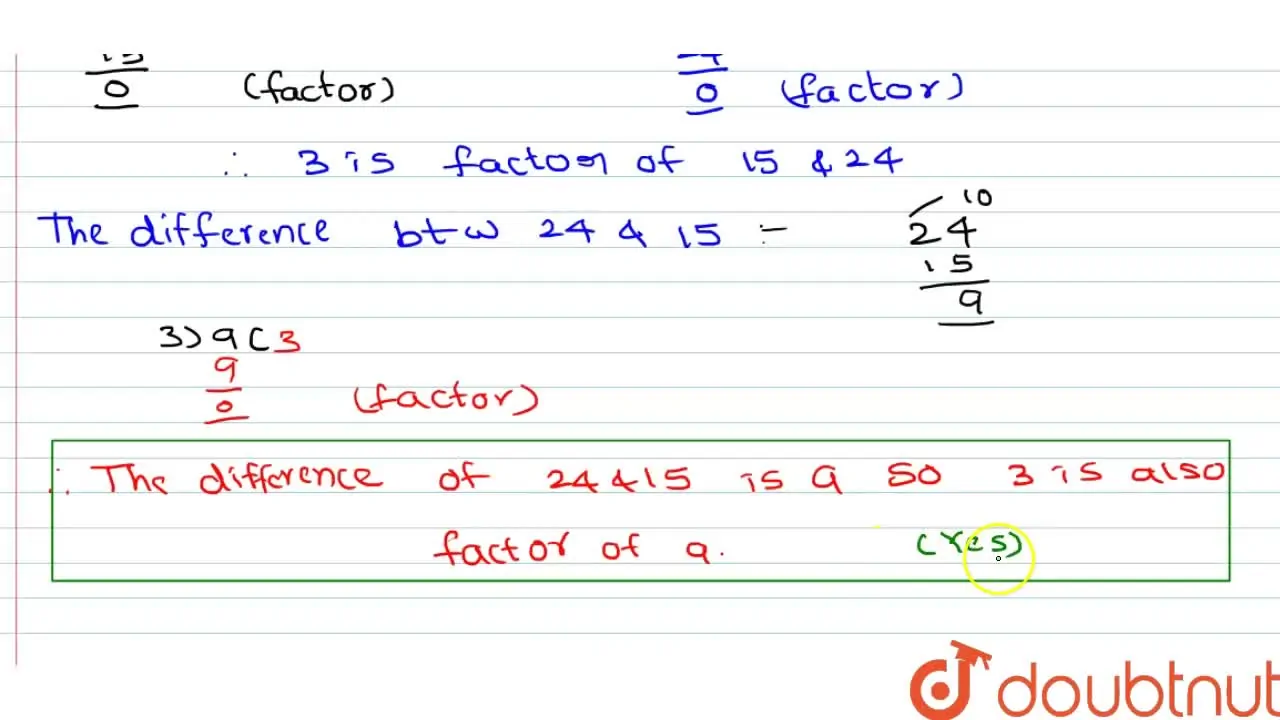 15
0 (factor)
4
0 (factor)
∴ 3 is factor of 15 & 24
The difference btw 24 & 15 :-
10
24
15
9
3) 9 ( 3
9
0 (factor)
∴ The difference of 24 & 15 is 9 so 3 is also
factor of 9.
(Yes)
doubtnut